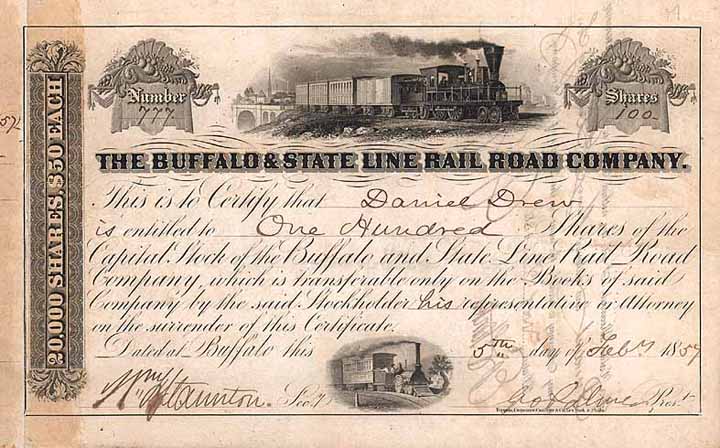 Number
777
Shares
100
20.000 SHARES, $50 EACH
THE BUFFALO & STATE LINE RAIL ROAD COMPANY.
This is to Certify that Daniel Drew
is entitled to One Hundred Shares of the
Capital Stock of the Buffalo and State Line Rail Road
Company, which is transferable only on the Books of said
Company by the said Stockholder his representative or Attorney
on the surrender of this Certificate.
Dated at Buffalo this 5th day of Feby 1857
Wm Staunton. Secy
Geo Palmer Prest